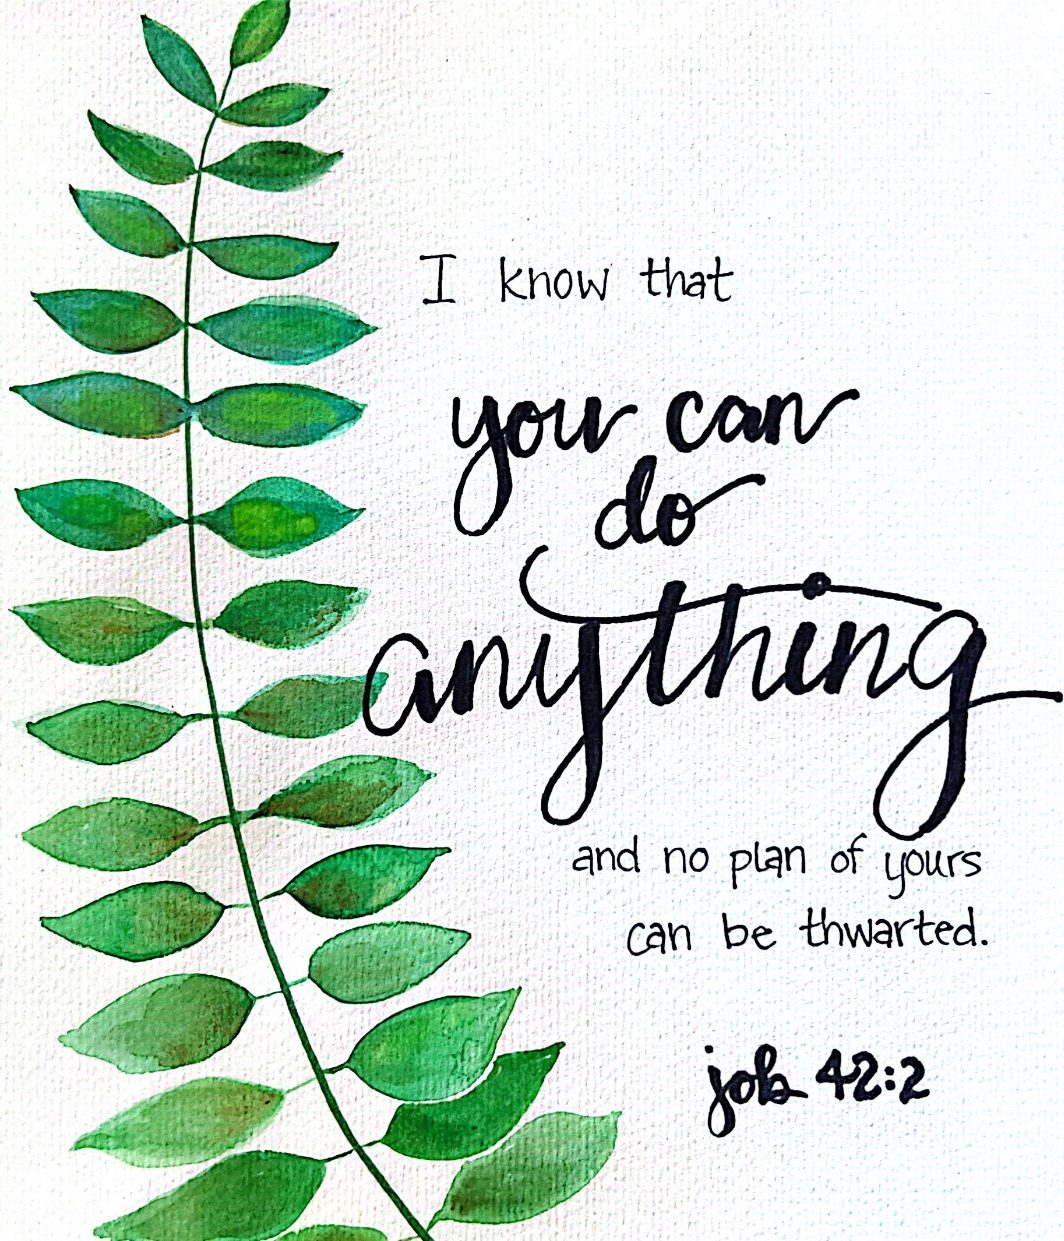 I know that
you can
do
anything
and no plan of yours
can be thwarted.
job 42:2